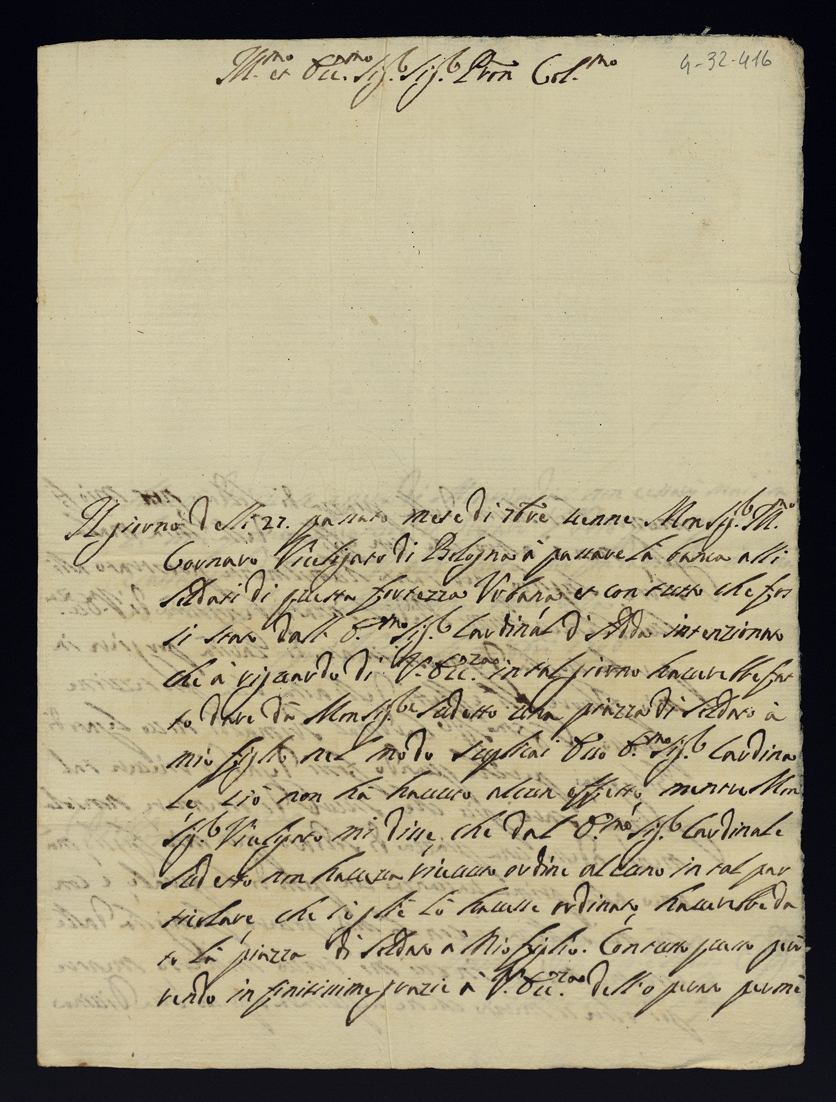 Ill.mo et Ecc.mo Sig.r Sig.r Pron Col.mo
4-32-416
Il giorno delli 27. passato mese di 7bre venne Monsig.r Ill.mo
Cornaro Vicelegato di Bologna à passare la banca alli
soldati di questa fortezza Urbana et con tutto che fos
si stato dall' E.mo Sig.r Cardinal d'Adda intenzionato
che à riguardo di V. Ecc.za in tal giorno haverebbe fat
to dare dà Monsig.r sudetto una piazza di soldato à
mio figlio nel modo suplicai d.to E.mo Sig.r Cardina
le ciò non hà havuto alcun effetto, mentre Mon
sig.r Vicelegato mi disse, che dal E.mo Sig.r Cardinale
sudetto non haveva ricevuto ordine alcuno in tal par
ticolare, che se glie lo havesse ordinato, haverebbe da
to la piazza di soldato à Mio figlio. Con tutto questo
rendo infinitissime grazie à V. Ecc.za dell'